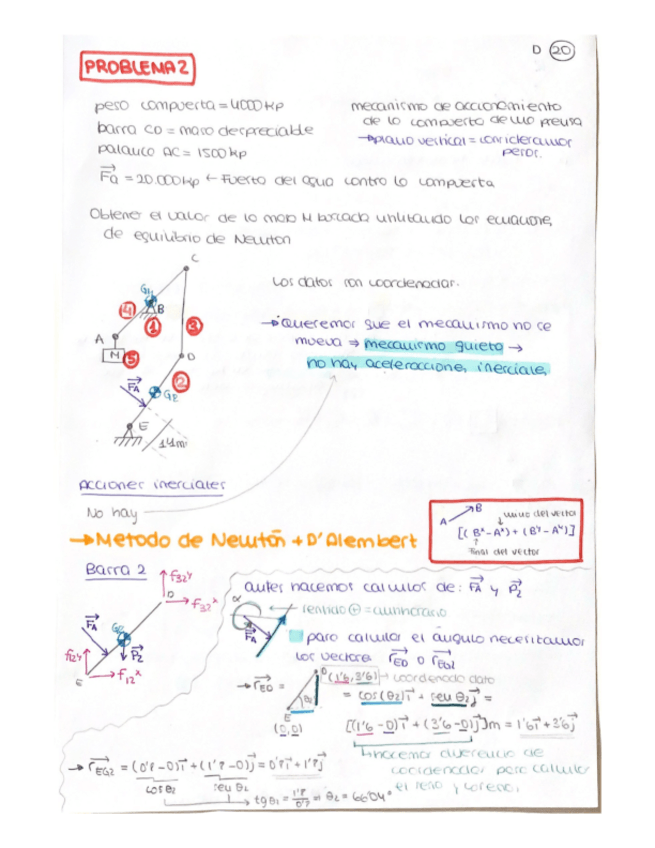 D 20
PROBLEMA 2
peso compuerta = 4000 kp
barra CD = masa despreciable
palanca AC = 1500 kp
Fa = 20.000 kp ← Fuerza del agua contra la compuerta
mecanismo de accionamiento
de la compuerta de una presa
→ plano vertical = consideramos
pesos.
Obtener el valor de la masa M buscada utilizando las ecuaciones
de equilibrio de Newton
C
G4
4
B
1
3
A
M
5
D
2
FA
G2
E
1'4m
Los datos son coordenadas.
→ Queremos que el mecanismo no se
mueva ⇒ mecanismo quieto →
no hay aceleraciones, inerciales
Acciones inerciales
No hay
→ Metodo de Newton + D'Alembert
A B inicio del vector
[(Bx-Ax) + (By-Ay)]
final del vector
Barra 2
f32y
D
f32x
FA
G2
P2
f12y
f12x
E
antes hacemos calculos de: FA y P2
α
sentido ⊕ = antihorario
FA
para calcular el ángulo necesitamos
los vectores rED o rEG2
→ rED =
D (1'6, 3'6) → coordenada dato
θ2
E
(0,0)
= cos(θ2)i + sen θ2 j =
[(1'6 - 0)i + (3'6 - 0)j]m = 1'6i + 3'6j
hacemos diferencia de
coordenadas para calcular
el seno y coseno.
→ rEG2 = (0'8 - 0)i + (1'8 - 0)j = 0'8i + 1'8j
cos θ2
sen θ2
→ tg θ2 = = θ2 = 66'04°